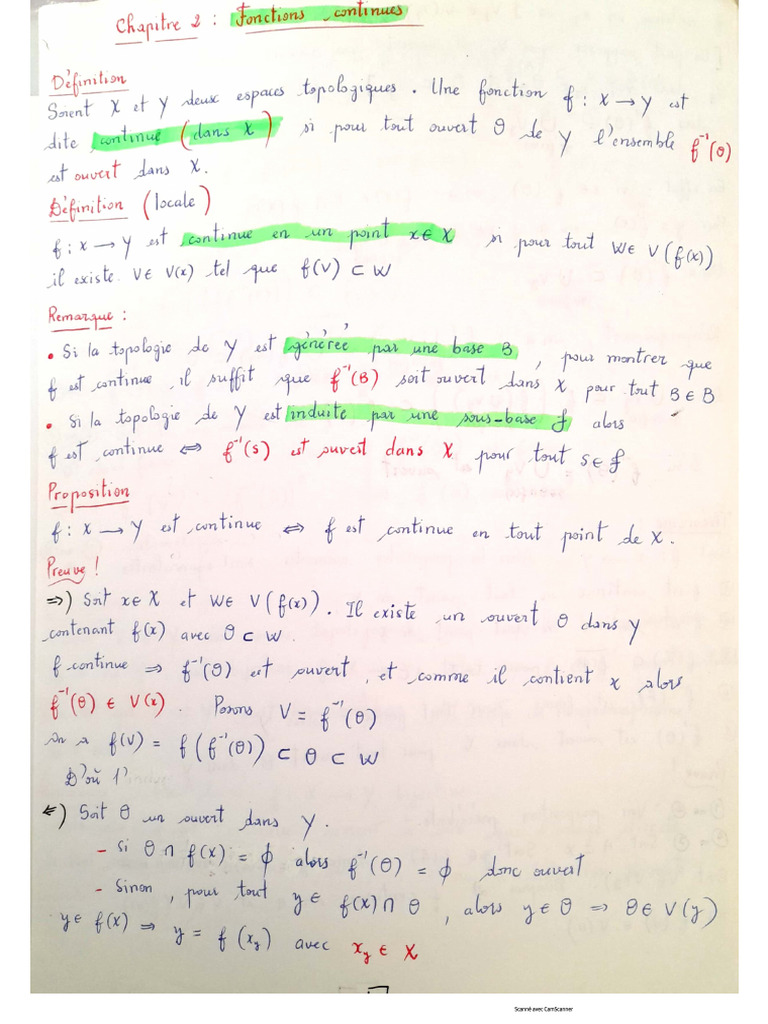 Chapitre 2 : Fonctions continues
Définition
Soient X et Y deux espaces topologiques. Une fonction f : X → Y est
dite continue (dans X) si pour tout ouvert θ de Y l'ensemble f⁻¹(θ)
est ouvert dans X.
Définition (locale)
f : X → Y est continue en un point x ∈ X si pour tout W ∈ V(f(x))
il existe V ∈ V(x) tel que f(V) ⊂ W
Remarque :
• Si la topologie de Y est générée par une base B, pour montrer que
f est continue, il suffit que f⁻¹(B) soit ouvert dans X pour tout B ∈ B
• Si la topologie de Y est induite par une sous-base f alors
f est continue ⇔ f⁻¹(s) est ouvert dans X pour tout s ∈ f
Proposition
f : X → Y est continue ⇔ f est continue en tout point de X.
Preuve !
⇒) Soit x ∈ X et W ∈ V(f(x)). Il existe un ouvert θ dans Y
contenant f(x) avec θ ⊂ W.
f continue ⇒ f⁻¹(θ) est ouvert, et comme il contient x alors
f⁻¹(θ) ∈ V(x). Posons V = f⁻¹(θ)
on a f(V) = f(f⁻¹(θ)) ⊂ θ ⊂ W
D'où l'
⇐) Soit θ un ouvert dans Y.
- Si θ ∩ f(X) = ϕ alors f⁻¹(θ) = ϕ donc ouvert
- Sinon, pour tout y ∈ f(X) ∩ θ, alors y ∈ θ ⇒ θ ∈ V(y)
y ∈ f(X) ⇒ y = f(x_y) avec x_y ∈ X
Scanné avec CamScanner